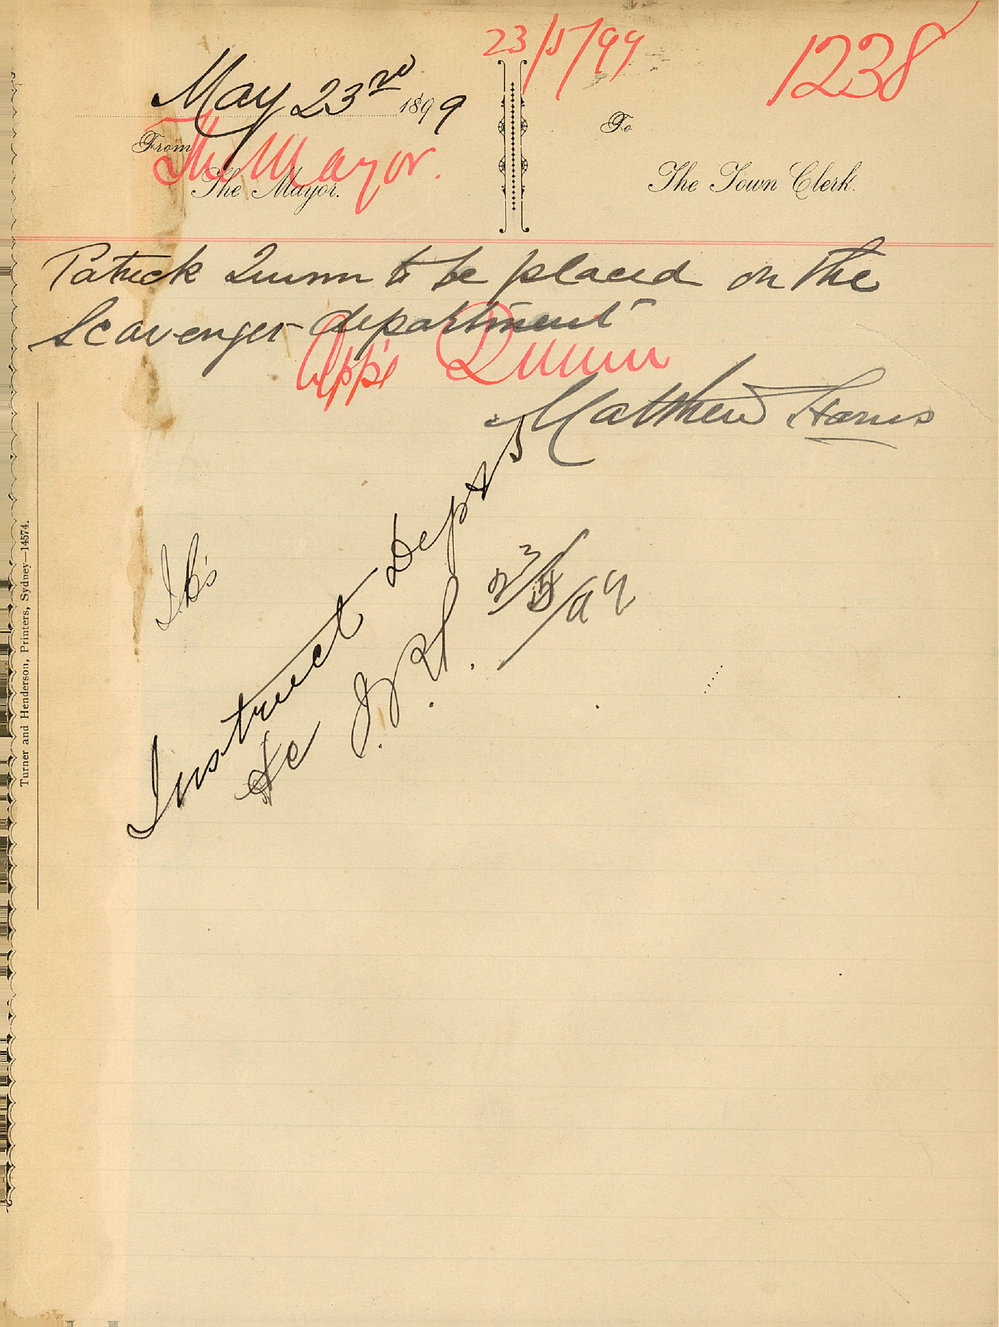 23/5/99
1238
May 23rd 1899
From
The Mayor.
The Mayor.
To
The Town Clerk.
Patrick Quinn to be placed on the
Scavenger department
App's Quinn
Matthew Harris
Instruct Depts
23/5/99
Turner and Henderson, Printers, Sydney—14574.